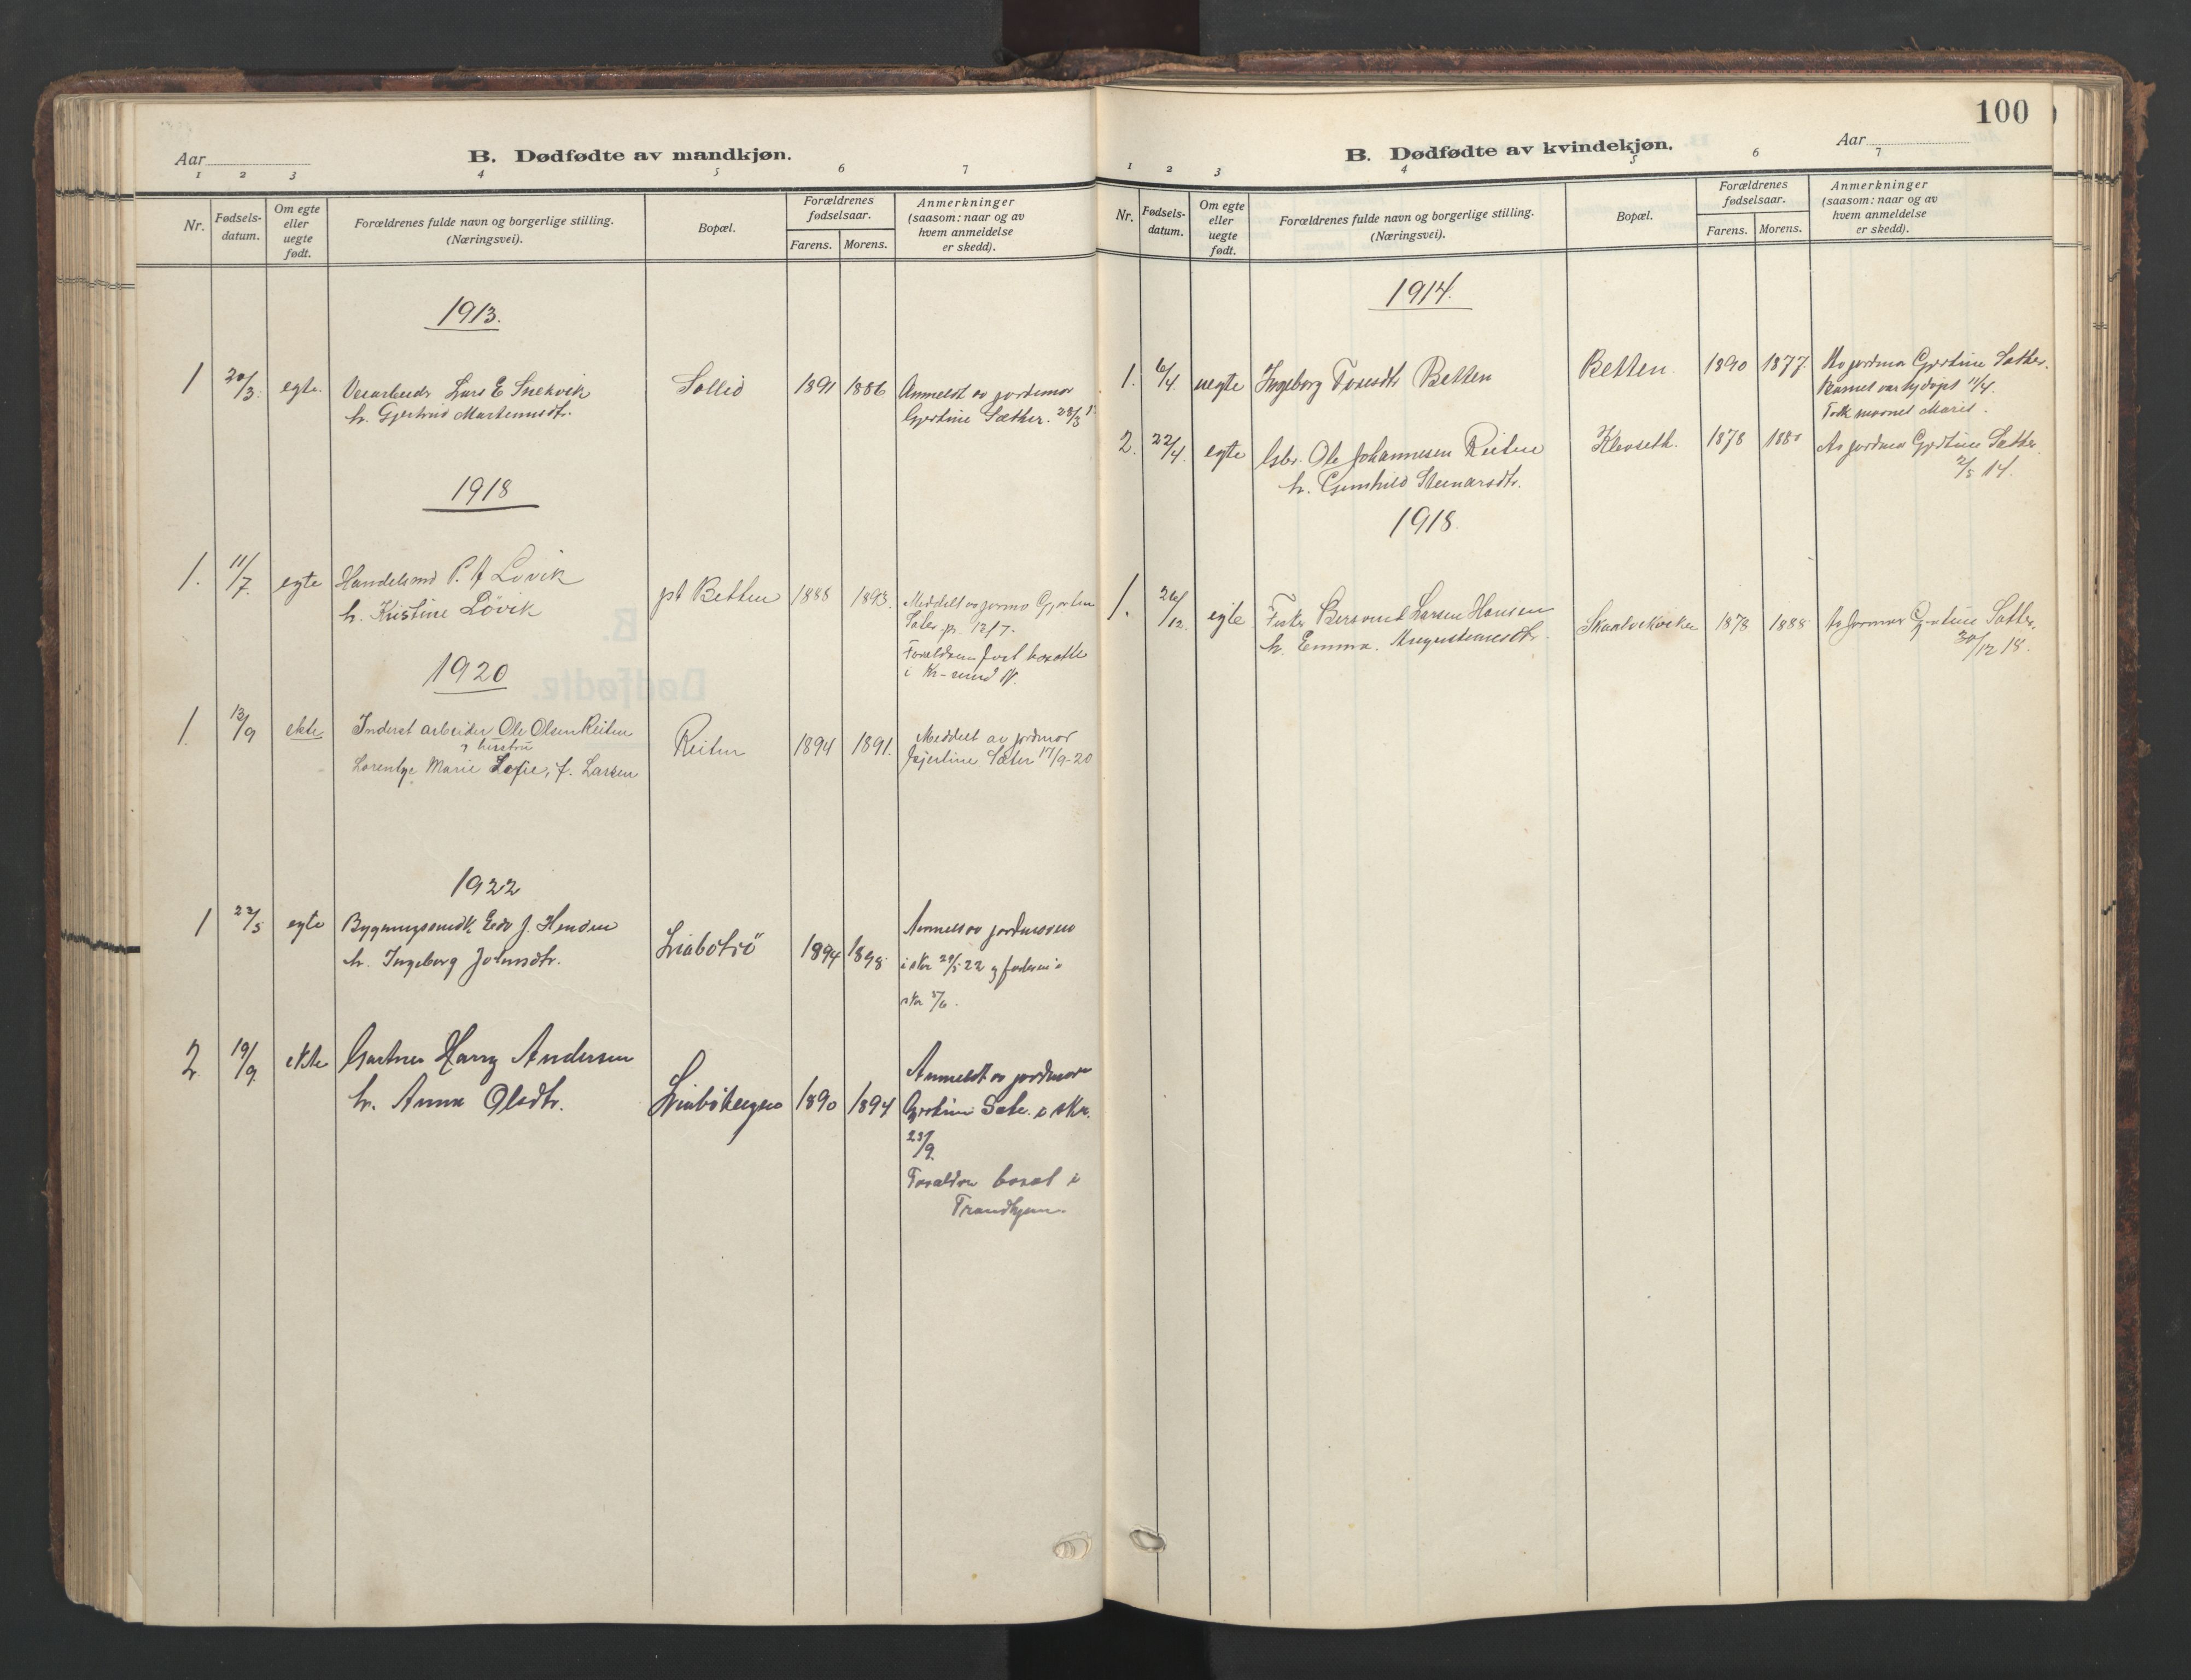 Aar
B. Dødfødte av mandkjøn.
1 2 3 4 5 6 7
Nr.
Fødsels-
datum.
Om egte
eller
uegte
født.
Forældrenes fulde navn og borgerlige stilling.
(Næringsvei).
Bopæl.
Forældrenes
fødselsaar.
Farens. Morens.
Anmerkninger
(saasom: naar og av
hvem anmeldelse
er skedd).
1913.
1 20/3 egte. Veiarbeider Lars E Snekvik Sollid 1891 1886 Anmeldt av jordmor
h. Gjertrud Martinusdtr. Gjertine Sæther. 28/3 13
1918
1. 11/7. egte Handelsmd P. A Lövik pt Betten 1888 1893. Meddelt av jormo Gjertine
h. Kristine Lövik Sæter pr. 12/7.
Foreldrene fort bosatte
i Kr-sund N.
1920
1. 13/9 ekte Inderst arbeider Ole Olsen Reiten Reiten 1894 1891. Meddelt av jordmor
og hustru Gjertine Sæter 17/9-20
Lorentze Marie f. Larsen
1922
1 22/5 egte Edv J. Henden 1894 1898 Anmeldt av jordmoren
h. Ingeborg Johnsdtr. i skr 29/5 22 og faderen i
skr 5/6.
2 19/9 ekte Gartner Harry Andersen 1890 1894 Anmeldt av jordmor
h. Anna Olsdtr. Gjertine Sæter i skr.
23/9.
Foreldre bosat i
Trondhjem.
100
Aar
B. Dødfødte av kvindekjøn.
1 2 3 4 5 6 7
Nr.
Fødsels-
datum.
Om egte
eller
uegte
født.
Forældrenes fulde navn og borgerlige stilling.
(Næringsvei).
Bopæl.
Forældrenes
fødselsaar.
Farens. Morens.
Anmerkninger
(saasom: naar og av
hvem anmeldelse
er skedd).
1914.
1. 6/4. uegte Ingeborg Toresdtr Betten Betten. 1890 1877. Av jordmor Gjertine Sæther.
Barnet var hjdøpt 11/4.
Marit.
2. 22/4. egte Gbr. Ole Johannesen Reiten Klevseth. 1878 Av jordmor Gjertine Sæther
h. Gunhild Steinarsdtr. 2/5 14.
1918.
1. 26/12. egte Fisker Bersvend Larsen Hansen 1878 1888 Av jormor Gjertine Sæther.
h. Emma Augustinusdtr. 30/12 18.